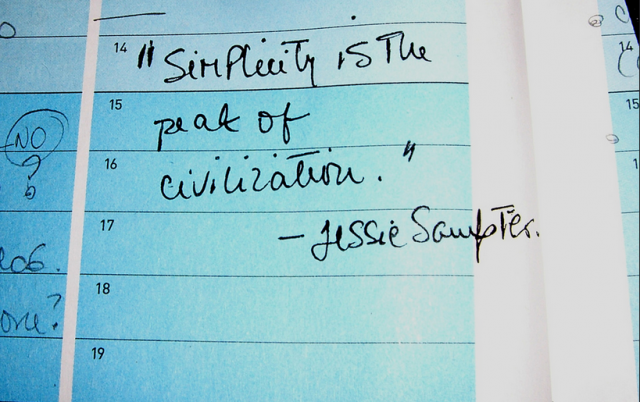 14 "Simplicity is the
15 peak of
16 civilization."
17 – Jessie Sampter.
18
19
NO
?
14
15
1